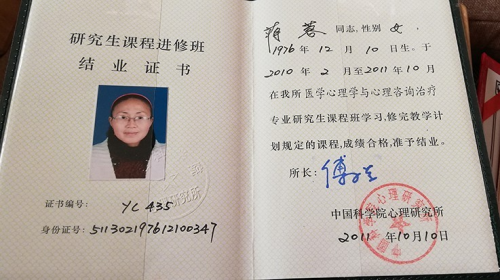 研究生课程进修班
结业证书
证书编号：YC435
身份证号：511302197612100347
蒋蓉 同志，性别 女，
1976年12月10日生。于
2010年2月至2011年10月
在我所医学心理学与心理咨询治疗
专业研究生课程班学习，修完教学计
划规定的课程，成绩合格，准予结业。
所长：
中国科学院心理研究所
2011年10月10日
中国科学院心理研究所